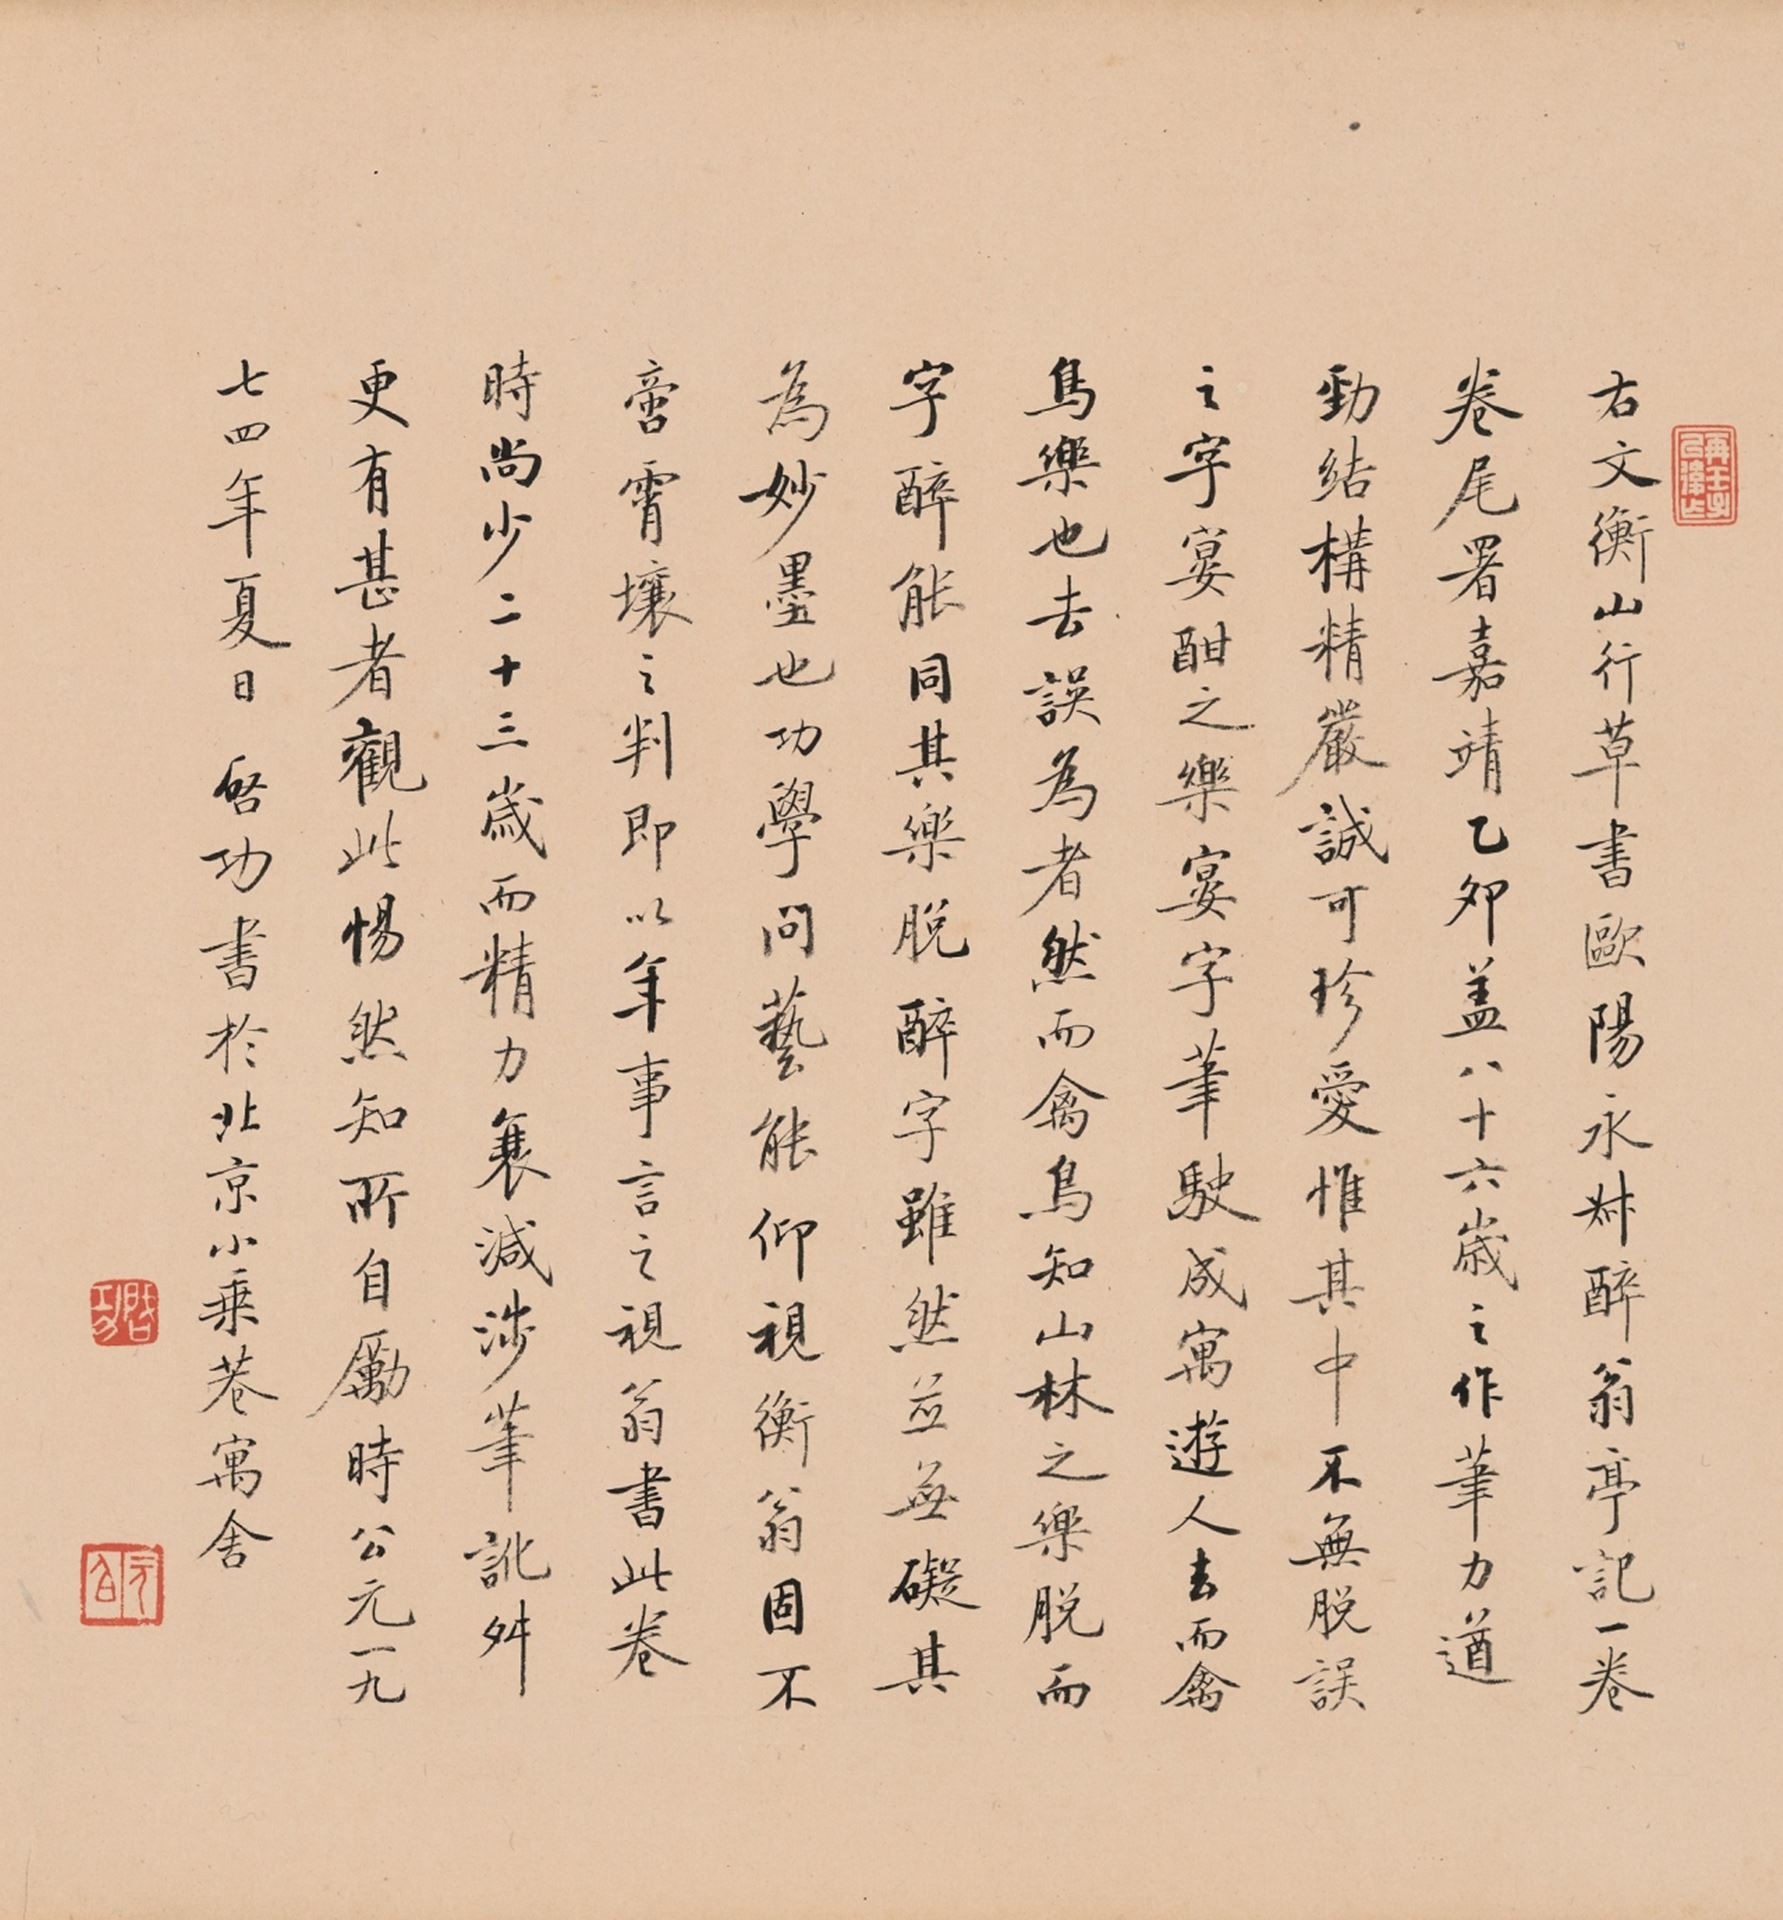 右文衡山行草書歐陽永叔醉翁亭記一卷
卷尾署嘉靖乙卯盖八十六歲之作筆力遒
勁結構精嚴誠可珍愛惟其中不無脱誤
之字宴酣之樂宴字筆駛成寓遊人去而禽
鳥樂也去誤為者然而禽鳥知山林之樂脱而
字醉能同其樂脱醉字雖然並無礙其
為妙墨也功學問藝能仰視衡翁固不
啻霄壤之判即以年事言之視翁書此卷
時尚少二十三歲而精力衰減涉筆訛舛
更有甚者觀此惕然知所自勵時公元一九
七四年夏日 啓功書於北京小乘巷寓舍
啟功
元白